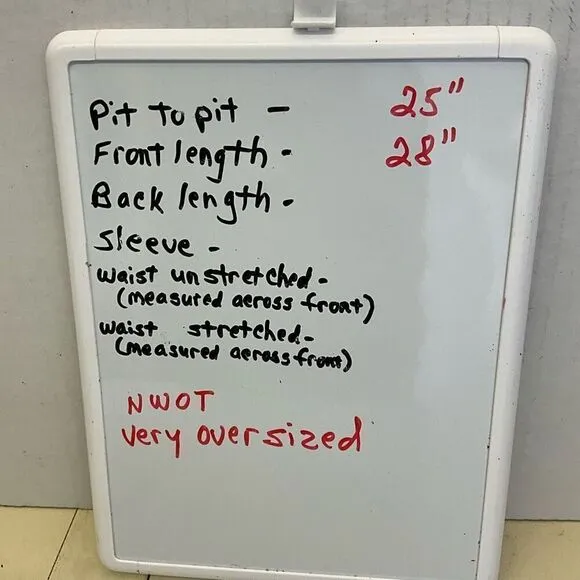 Pit to pit - 25"
Front length - 28"
Back length -
Sleeve -
waist unstretched -
(measured across front)
waist stretched -
(measured across front)
NWOT
very oversized